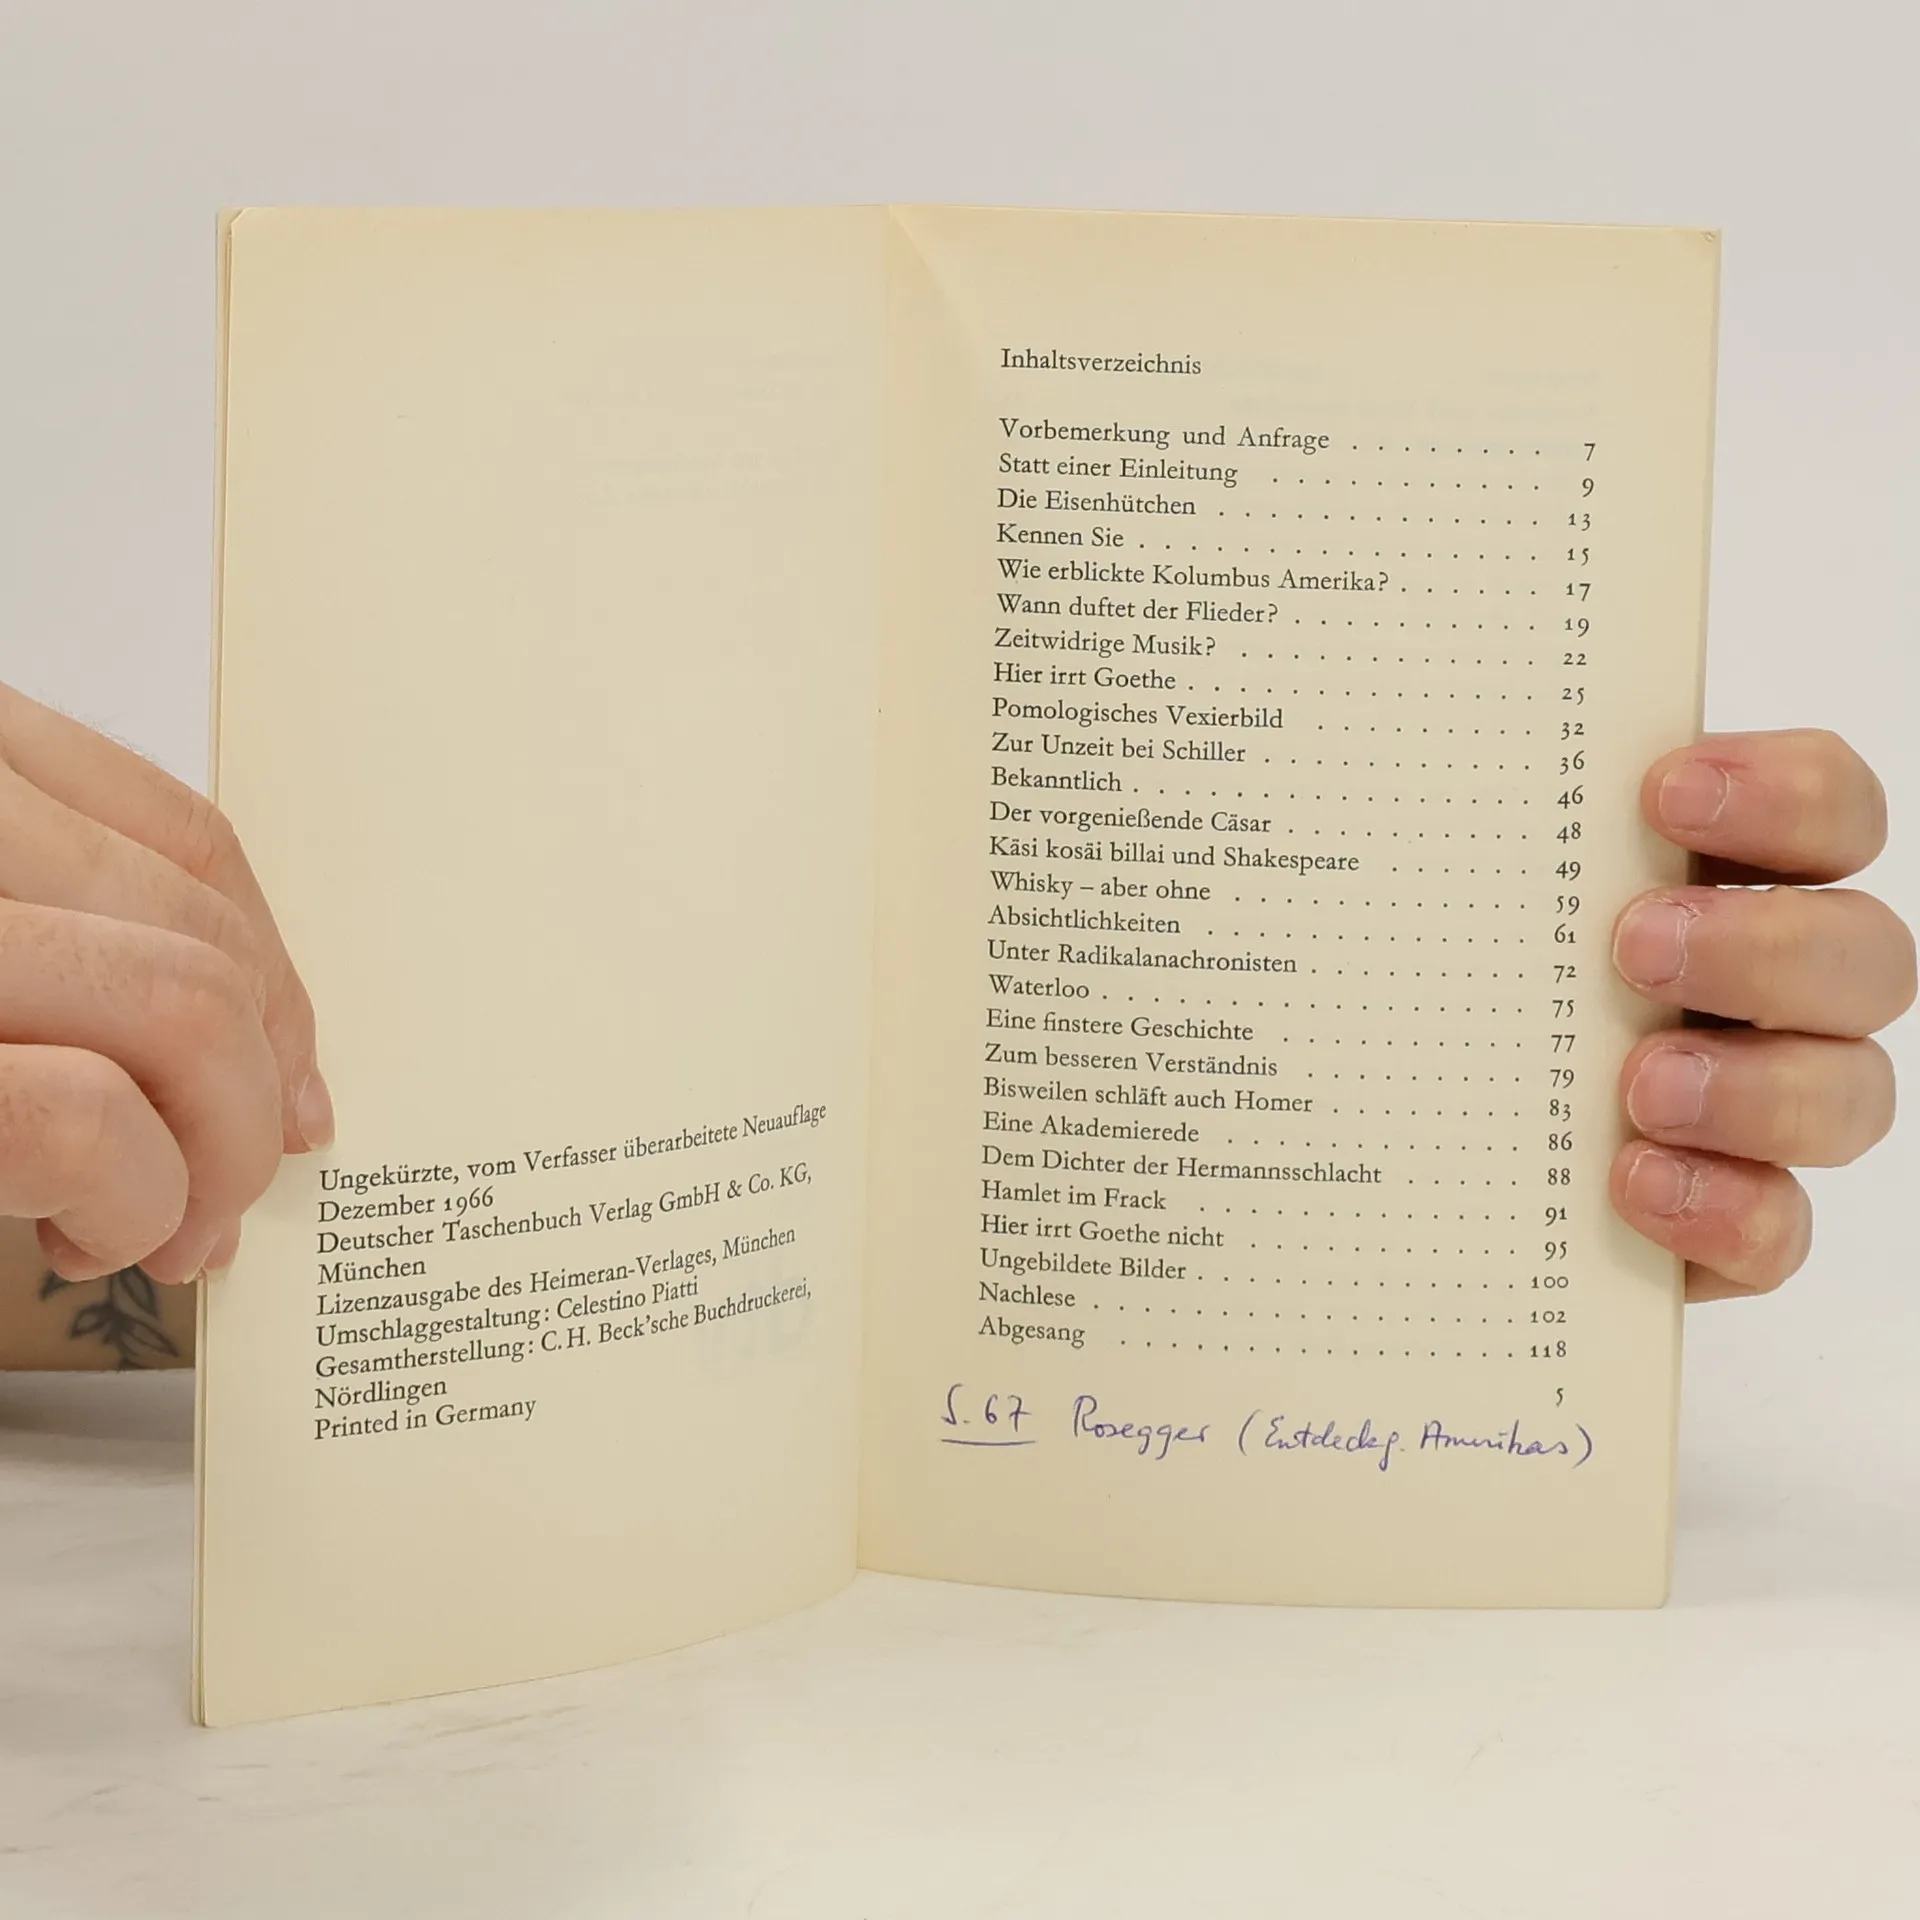 Ungekürzte, vom Verfasser überarbeitete Neuauflage
Dezember 1966
Deutscher Taschenbuch Verlag GmbH & Co. KG,
München
Lizenzausgabe des Heimeran-Verlages, München
Umschlaggestaltung: Celestino Piatti
Gesamtherstellung: C. H. Beck'sche Buchdruckerei,
Nördlingen
Printed in Germany
Inhaltsverzeichnis
Vorbemerkung und Anfrage . . . . . . . . 7
Statt einer Einleitung . . . . . . . . . . . 9
Die Eisenhütchen . . . . . . . . . . . . . 13
Kennen Sie . . . . . . . . . . . . . . . . 15
Wie erblickte Kolumbus Amerika? . . . . . . 17
Wann duftet der Flieder? . . . . . . . . . . 19
Zeitwidrige Musik? . . . . . . . . . . . . 22
Hier irrt Goethe . . . . . . . . . . . . . . 25
Pomologisches Vexierbild . . . . . . . . . 32
Zur Unzeit bei Schiller . . . . . . . . . . . 36
Bekanntlich . . . . . . . . . . . . . . . . 46
Der vorgenießende Cäsar . . . . . . . . . . 48
Käsi kosäi billai und Shakespeare . . . . . . 49
Whisky – aber ohne . . . . . . . . . . . . 59
Absichtlichkeiten . . . . . . . . . . . . . 61
Unter Radikalanachronisten . . . . . . . . . 72
Waterloo . . . . . . . . . . . . . . . . . 75
Eine finstere Geschichte . . . . . . . . . . 77
Zum besseren Verständnis . . . . . . . . . 79
Bisweilen schläft auch Homer . . . . . . . . 83
Eine Akademierede . . . . . . . . . . . . 86
Dem Dichter der Hermannsschlacht . . . . . 88
Hamlet im Frack . . . . . . . . . . . . . 91
Hier irrt Goethe nicht . . . . . . . . . . . 95
Ungebildete Bilder . . . . . . . . . . . . . 100
Nachlese . . . . . . . . . . . . . . . . . 102
Abgesang . . . . . . . . . . . . . . . . 118
5
S. 67 Rosegger (Entdeckg. Amerikas)